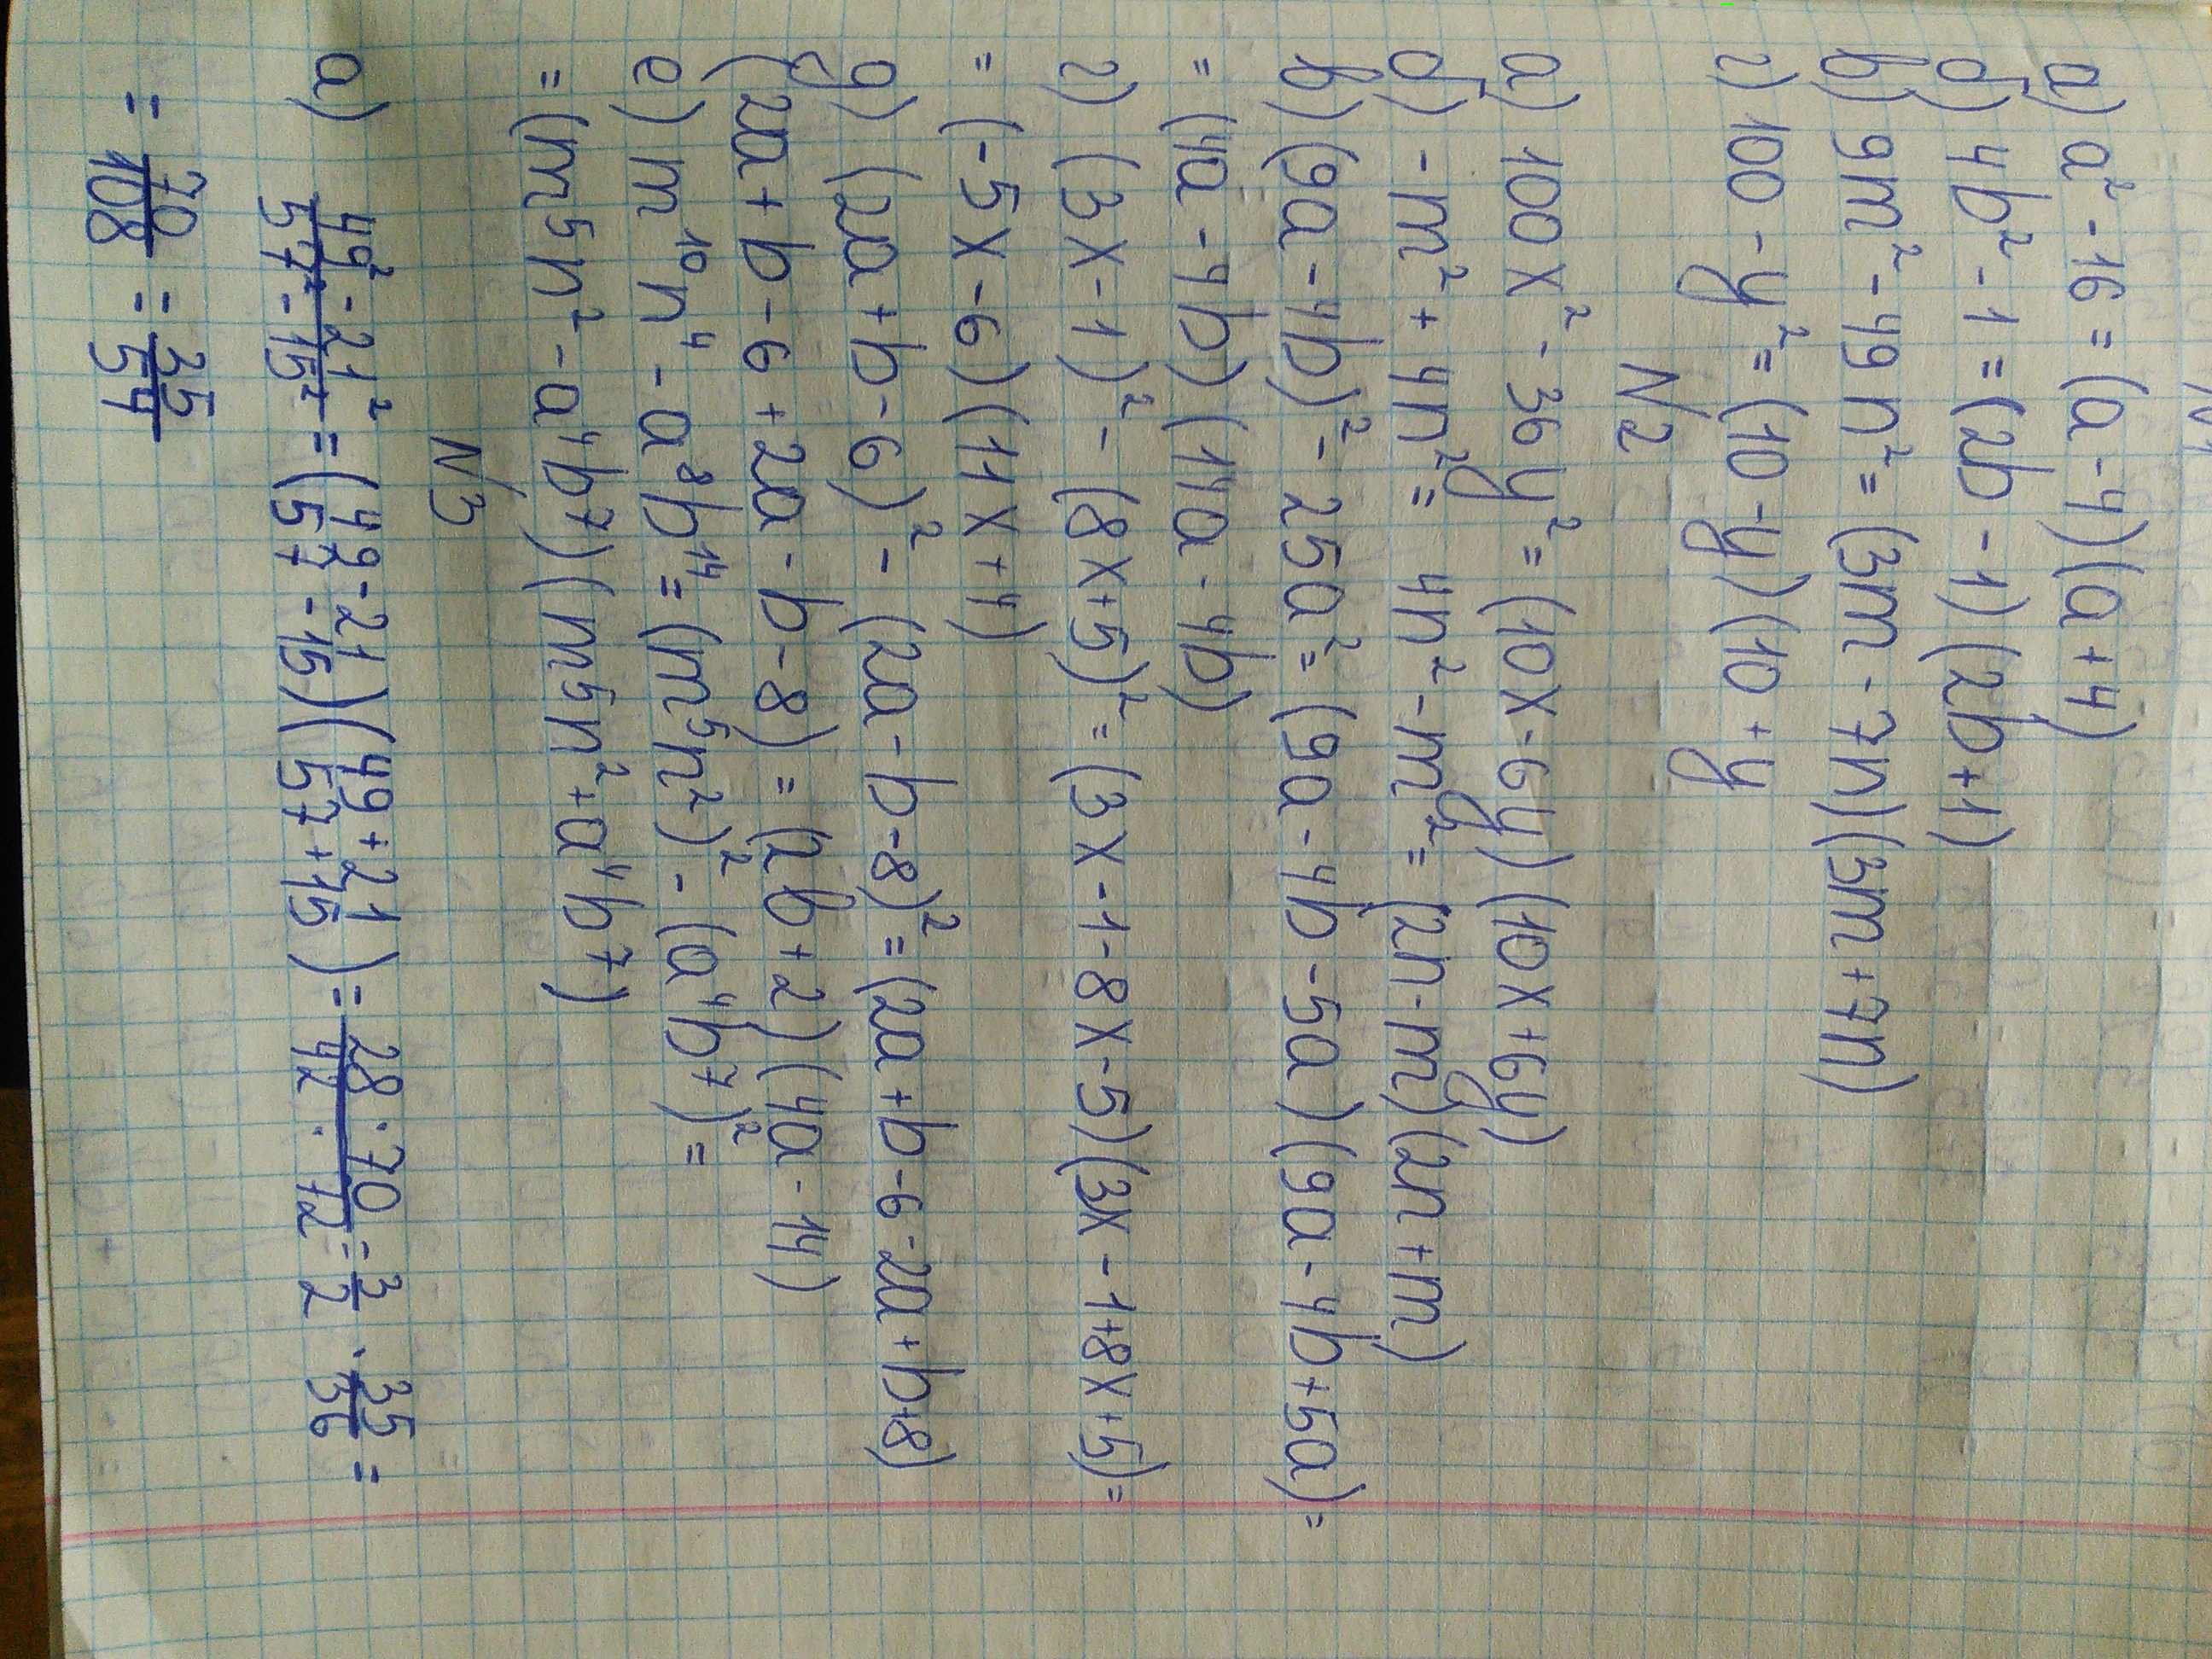 N1
а) a² - 16 = (a - 4)(a + 4)
б) 4b² - 1 = (2b - 1)(2b + 1)
в) 9m² - 49n² = (3m - 7n)(3m + 7n)
г) 100 - y² = (10 - y)(10 + y
N2
а) 100x² - 36y² = (10x - 6y)(10x + 6y)
б) - m² + 4n² = 4n² - m² = (2n - m)(2n + m)
в) (9a - 4b)² - 25a² = (9a - 4b - 5a)(9a - 4b + 5a) =
= (4a - 4b)(14a - 4b)
г) (3x - 1)² - (8x + 5)² = (3x - 1 - 8x - 5)(3x - 1 + 8x + 5) =
= (-5x - 6)(11x + 4)
д) (2a + b - 6)² - (2a - b - 8)² = (2a + b - 6 - 2a + b + 8)
(2a + b - 6 + 2a - b - 8) = (2b + 2)(4a - 14)
е) m¹⁰n⁴ - a⁸b¹⁴ = (m⁵n²)² - (a⁴b⁷)² =
= (m⁵n² - a⁴b⁷)(m⁵n² + a⁴b⁷)
N3
а) 49² - 21² / 57² - 15² = (49 - 21)(49 + 21) / (57 - 15)(57 + 15) = 28 · 70 / 42 · 72 = 3/2 · 35/36 =
= 70/108 = 35/54